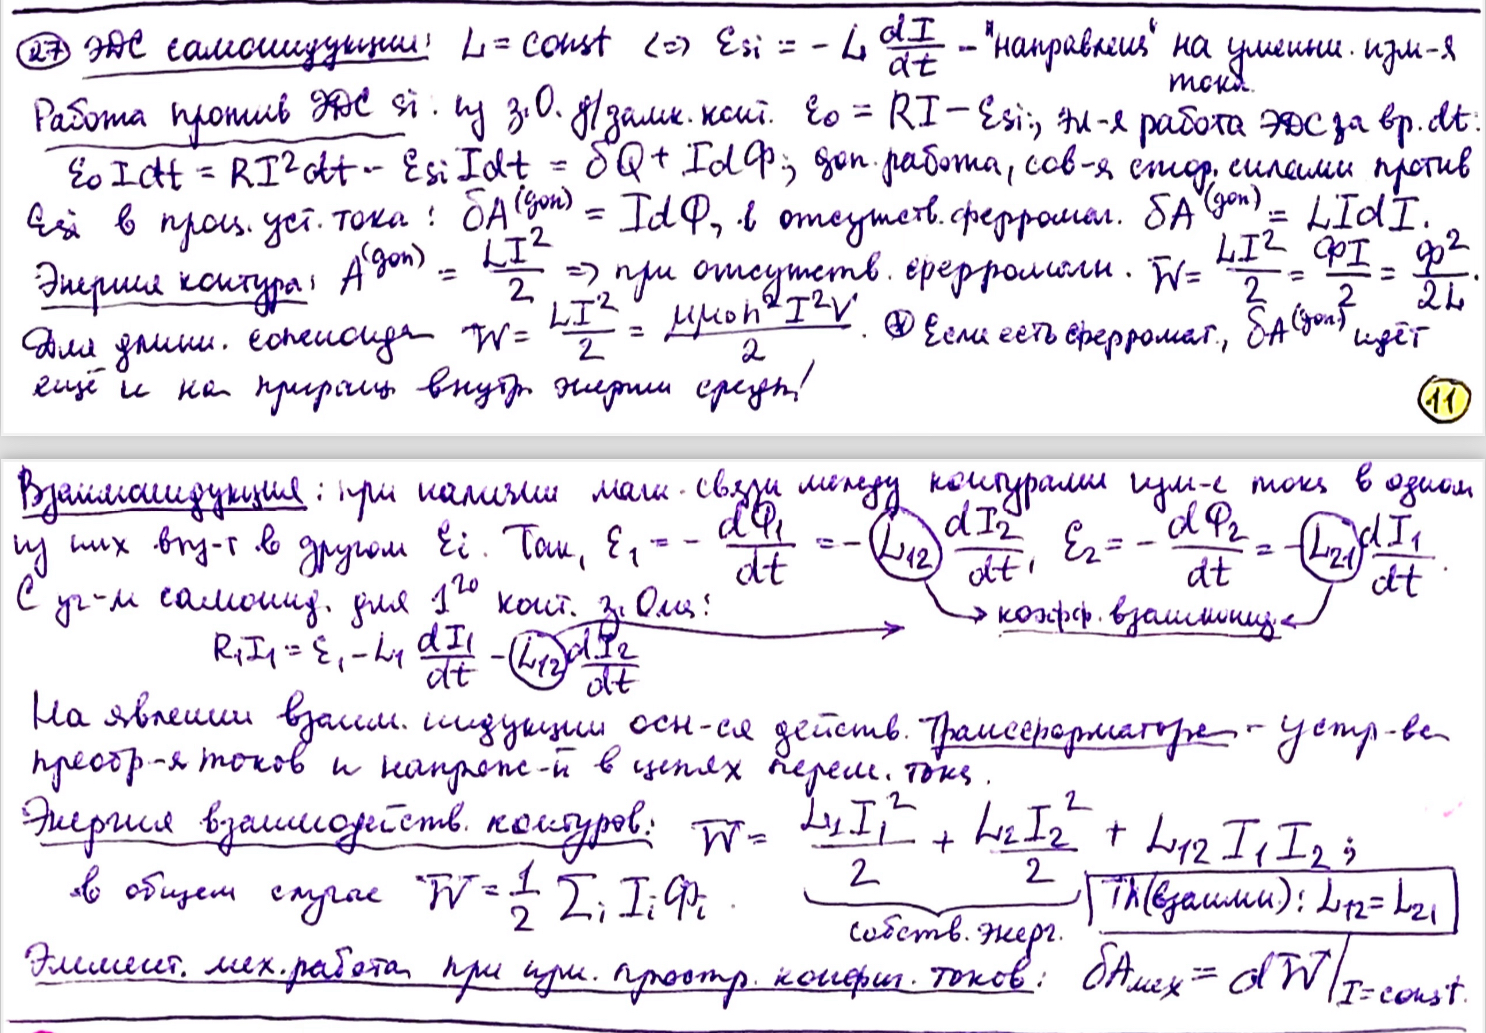 27 ЭДС самоиндукции: L = const <=> Ɛsi = - L dI/dt - "направлена" на уменьш. изм-я тока.
Работа против ЭДС si: из з. О. д/замк. конт. Ɛ₀ = RI - Ɛsi; эл-я работа ЭДС за вр. dt:
Ɛ₀Idt = RI²dt - ƐsiIdt = δQ + IdФ; доп. работа, сов-я стор. силами против
Ɛsi в проц. уст. тока: δA^(доп) = IdФ, в отсутств. ферромаг. δA^(доп) = LIdI.
Энергия контура: A^(доп) = LI²/2 => при отсутств. ферромагн. W = LI²/2 = ФI/2 = Ф²/2L.
Для длинн. соленоида W = LI²/2 = μμ₀n²I²V/2. Если есть ферромаг., δA^(доп) идёт
ещё и на приращ внутр. энергии среды!
11
Взаимоиндукция: при наличии магн. связи между контурами изм-е тока в одном
из них взб-т в другом Ɛi. Так, Ɛ₁ = - dФ₁/dt = - L₁₂ dI₂/dt, Ɛ₂ = - dФ₂/dt = - L₂₁ dI₁/dt.
С уч-м самоинд. для 1го конт. з. Ома: коэфф. взаимоинд.
R₁I₁ = Ɛ₁ - L₁ dI₁/dt - L₁₂ dI₂/dt
На явлении взаим. индукции осн-ся действ. трансформатора - устр-ва
преобр-я токов и напряж-й в цепях перем. тока.
Энергия взаимодейств. контуров: W = L₁I₁²/2 + L₂I₂²/2 + L₁₂I₁I₂;
в общем случае W = 1/2 Σi IiФi. собств. энерг. Th(взаимн.): L₁₂ = L₂₁
Элемент. мех. работа при изм. простр. конфиг. токов: δAмех = dW|I=const.